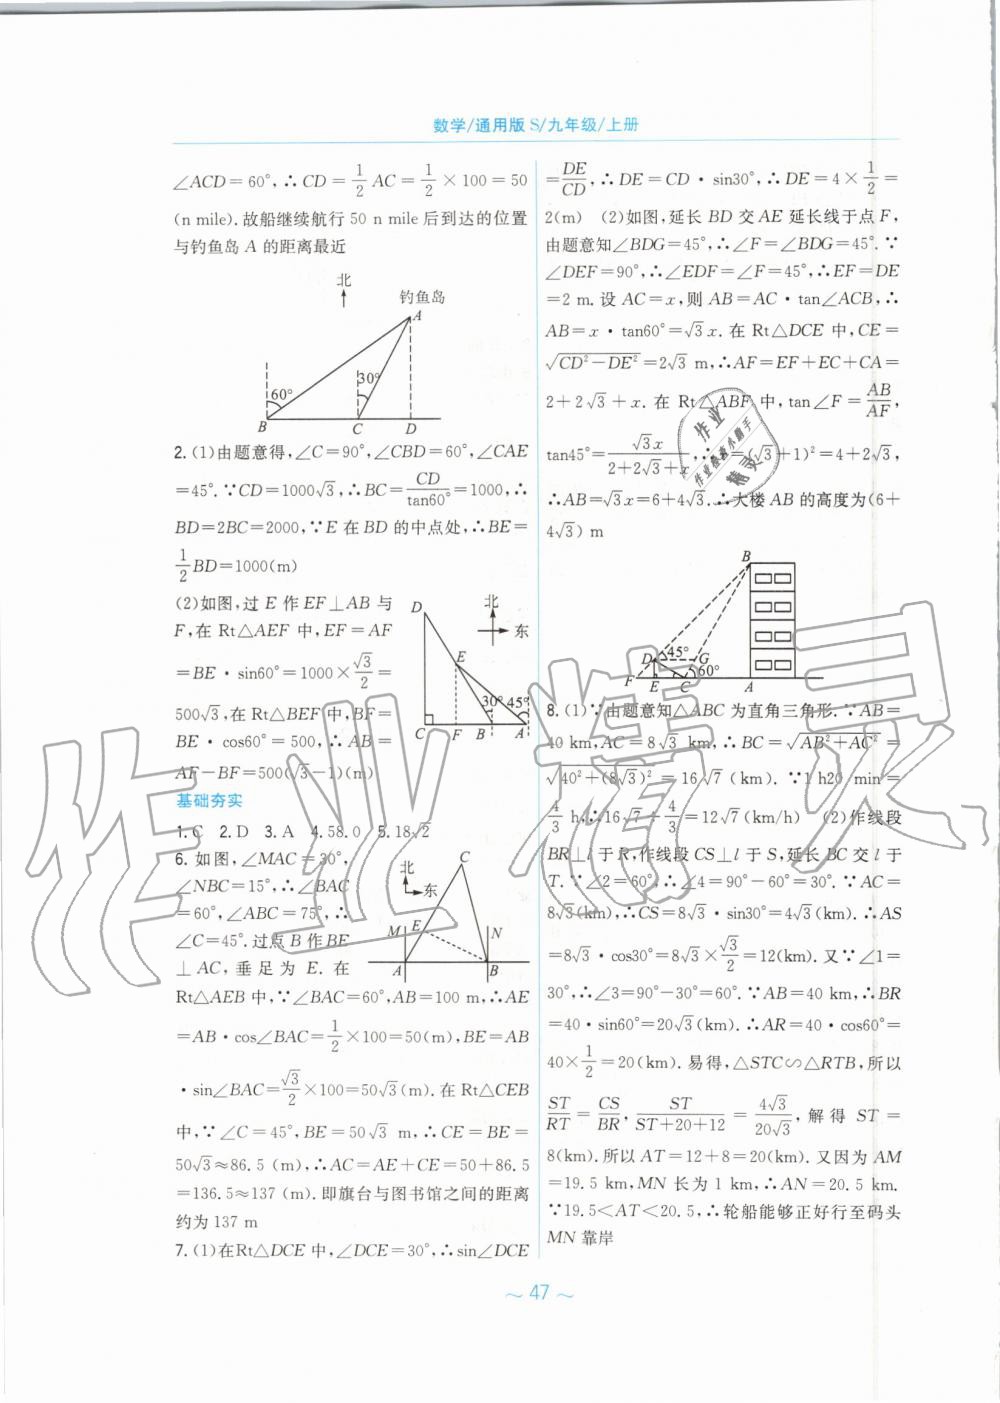 数学/通用版 S/九年级/上册
∠ACD=60°,∴CD=1/2 AC=1/2×100=50
(n mile).故船继续航行 50 n mile 后到达的位置
与钓鱼岛 A 的距离最近
北
钓鱼岛
A
60°
30°
B C D
2.(1)由题意得,∠C=90°,∠CBD=60°,∠CAE
=45°.∵CD=1000√3,∴BC=CD/tan60°=1000,∴
BD=2BC=2000,∵E 在 BD 的中点处,∴BE=
1/2 BD=1000(m)
(2)如图,过 E 作 EF⊥AB 与
F,在 Rt△AEF 中,EF=AF
=BE·sin60°=1000×√3/2=
500√3,在Rt△BEF 中,BF=
BE·cos60°=500,∴AB=
AF-BF=500(√3-1)(m)
D
北
东
E
30° 45°
C F B A
基础夯实
1.C 2.D 3.A 4.58.0 5.18√2
6.如图,∠MAC=30°,
∠NBC=15°,∴∠BAC
=60°,∠ABC=75°,∴
∠C=45°.过点 B 作 BE
⊥AC,垂足为 E.在
北
东
C
M E N
A B
Rt△AEB 中,∵∠BAC=60°,AB=100 m,∴AE
=AB·cos∠BAC=1/2×100=50(m),BE=AB
·sin∠BAC=√3/2×100=50√3(m).在 Rt△CEB
中,∵∠C=45°,BE=50√3 m,∴CE=BE=
50√3≈86.5 (m),∴AC=AE+CE=50+86.5
=136.5≈137 (m).即旗台与图书馆之间的距离
约为 137 m
7.(1)在Rt△DCE 中,∠DCE=30°,∴sin∠DCE
=DE/CD,∴DE=CD·sin30°,∴DE=4×1/2=
2(m) (2)如图,延长 BD 交 AE 延长线于点 F,
由题意知∠BDG=45°,∴∠F=∠BDG=45°.∵
∠DEF=90°,∴∠EDF=∠F=45°,∴EF=DE
=2 m.设 AC=x,则 AB=AC·tan∠ACB,∴
AB=x·tan60°=√3x.在 Rt△DCE 中,CE=
√(CD²-DE²)=2√3 m,∴AF=EF+EC+CA=
2+2√3+x.在 Rt△ABF 中,tan∠F=AB/AF,
tan45°=√3x/(2+2√3+x),∴x=(√3+1)²=4+2√3,
∴AB=√3x=6+4√3.∴大楼 AB 的高度为(6+
4√3) m
B
D 45° G
60°
F E C A
8.(1)∵由题意知△ABC 为直角三角形.∵AB=
40 km,AC=8√3 km,∴BC=√(AB²+AC²)=
√(40²+(8√3)²)=16√7 (km).∵1 h20 min=
4/3 h,∴16√7÷4/3=12√7(km/h) (2)作线段
BR⊥l于 R,作线段 CS⊥l 于 S,延长 BC 交 l 于
T.∵∠2=60°,∴∠4=90°-60°=30°.∵AC=
8√3(km),∴CS=8√3·sin30°=4√3(km).∴AS
=8√3·cos30°=8√3×√3/2=12(km).又∵∠1=
30°,∴∠3=90°-30°=60°.∵AB=40 km,∴BR
=40·sin60°=20√3(km).∴AR=40·cos60°=
40×1/2=20(km).易得,△STC∽△RTB,所以
ST/RT=CS/BR,ST/(ST+20+12)=4√3/20√3,解得 ST=
8(km).所以 AT=12+8=20(km).又因为 AM
=19.5 km,MN 长为 1 km,∴AN=20.5 km.
∵19.5<AT<20.5,∴轮船能够正好行至码头
MN 靠岸
~ 47 ~
作业精灵